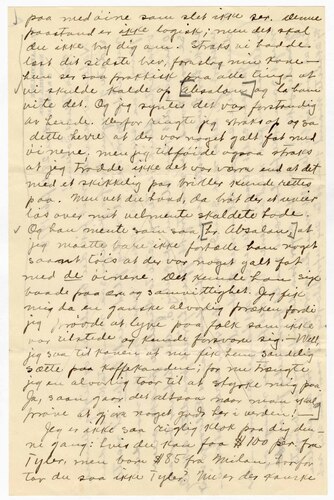 paa med øine som slet ikke ser. Denne
paastand er ikke logisk; men det skal
du ikke bry dig om. Straks vi hadde
læst dit sidste brev, foreslog min kone -
hun er saa praktisk paa alle ting - at
vi skulde kalde op Absalon og la ham
vite det. Og jeg syntes det var forstandig
av hende. Derfor ringte jeg straks op og sa
dette hevre at der var noget galt fat med
øinene, men jeg tilføide ogsaa straks
at jeg trodde ikke det var værre end at det
med et skikkelig par briller kunde rettes
paa. Men vet du hvad, da blev der et uveir
løs over mit velmente skaldete hode.
Og han mente som saa, Absalon, at
jeg maatte bare ikke fortælle ham noget
saant tøis at der var noget galt fat
med de øinene. Det kunde han si
baade paa ære og samvittighet. Jeg fik
mig da en ganske alvorlig
jeg prøvde at lyve paa folk som ikke
var tilstede og kunde forsvare sig. - Well,
jeg saa til konen at nu fik hun sandelig
sætte paa kaffekanden; for nu trængte
jeg en alvorlig taar til at styrke mig paa.
Ja, saan gaar det altsaa naar man skal
prøve at gjøre noget godt her i verden! -
Jeg er ikke saa rigtig klok paa dig den-
ne gang: hvis du kan faa $100 pr. fra
Tyler, men bare $85 fra Milan, hvorfor
tar du saa ikke Tyler? Nu er der kanske